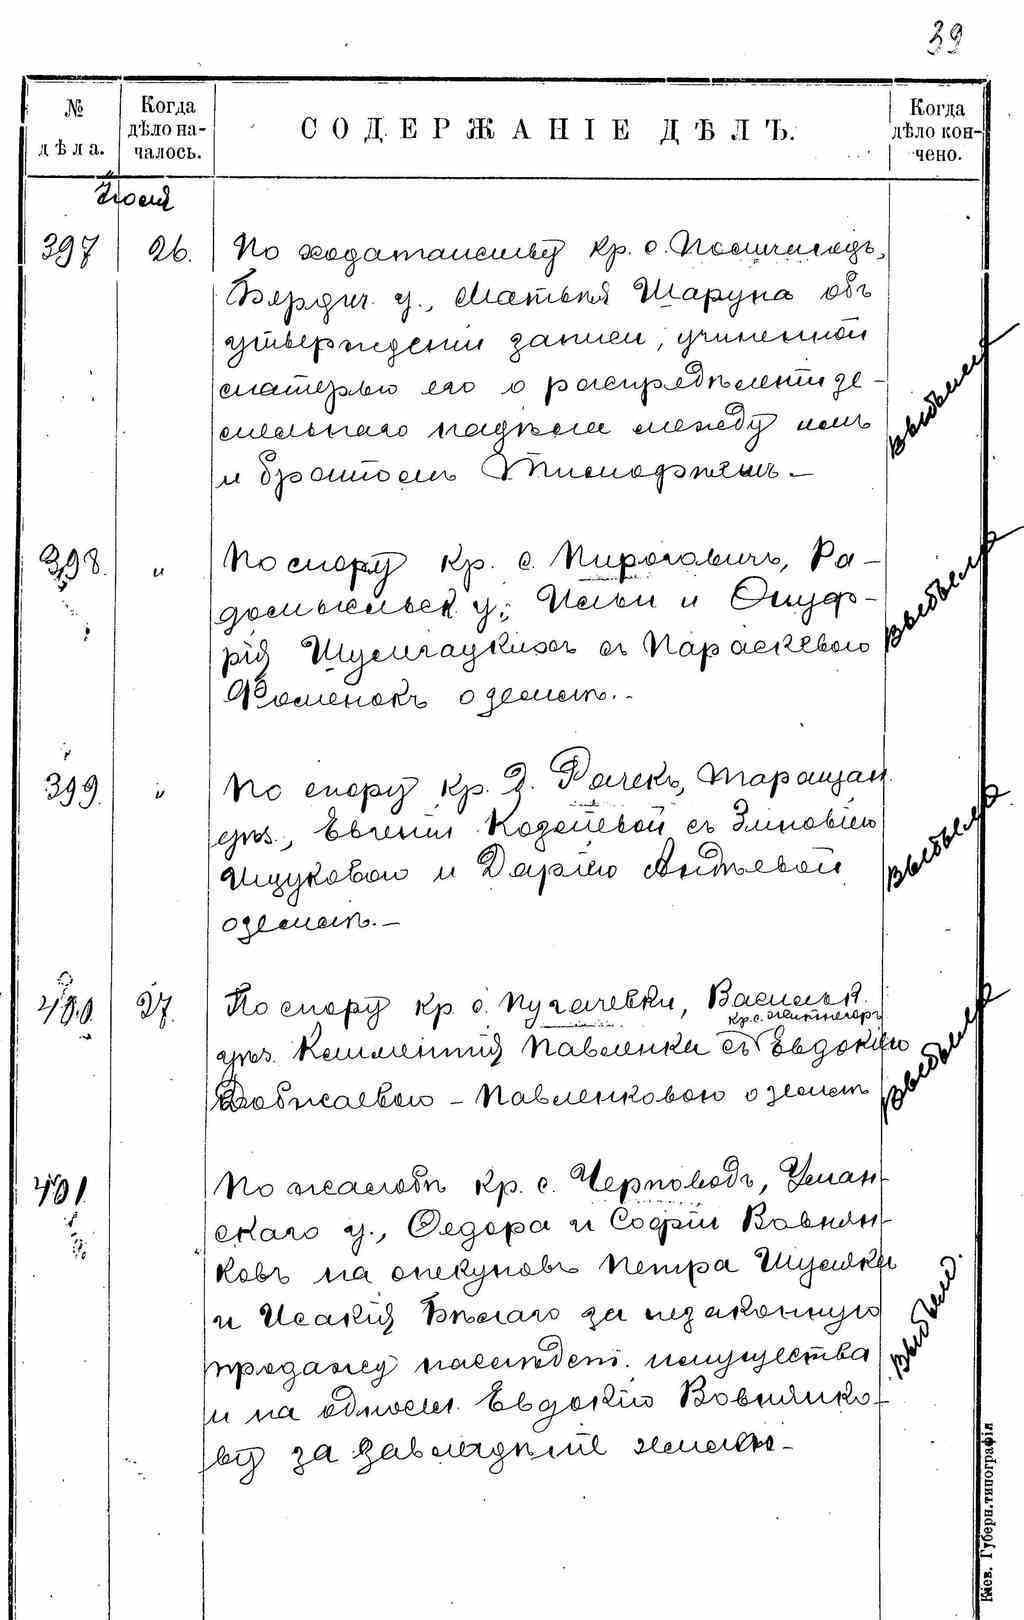 39
№ дѣла.
Когда дѣло началось.
СОДЕРЖАНІЕ ДѢЛЪ.
Когда дѣло кончено.
Іюля
397 26. По ходатайству кр. с.
Бердич. у., Матвѣя Шаруна объ
утвержденіи записи, учиненной
матерью его о распредѣленіи зе-
мельнаго надѣла между нимъ
и братомъ Тимофѣемъ.—
выбыло
398. " По спору кр. с. Пироговичъ, Ра-
домысльск. у., Ильи и Онуф-
рія Шумигацкихъ съ Параскевою
Фоменокъ о землѣ.-
выбыло
399. " По спору кр. д. Рачекъ, Таращан.
уѣз., Евгеніи съ Зиновіею
Ищуковою и Даріею
о землѣ.—
выбыло
400 27. По спору кр. с. Пугачевки, Васильк.
кр. с. Житнегоръ
уѣз. Климентія Павленки съ Евдокіею
Павленковою о землѣ
выбыло
401 По жалобѣ кр. с. Черповодъ, Уман-
скаго у., Федора и Софіи Вовнян-
ковъ на опекуновъ Петра Шуляка
и Исакія Бѣлаго за незаконную
продажу наслѣдст. имущества
и на односел. Евдокію Вовнянко-
ву за завладѣніе землею-
выбыло.
Кіев. Губерн. типографія